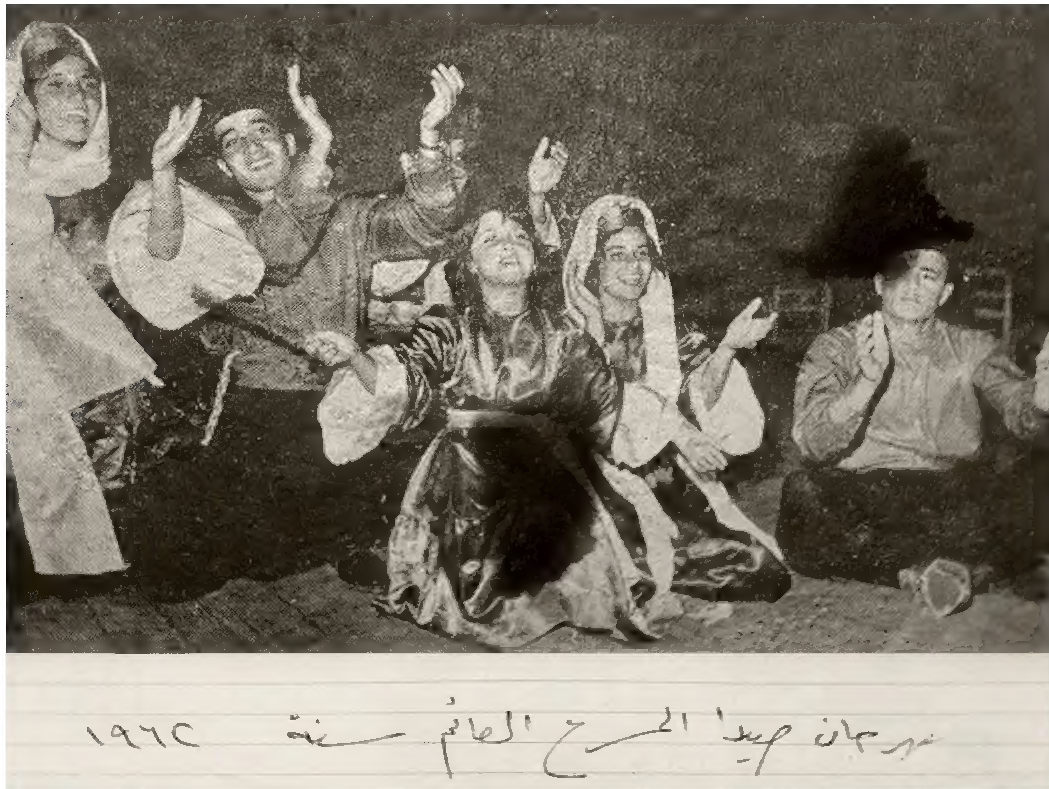 مهرجان صيدا المسرح العائم سنة ١٩٦٢